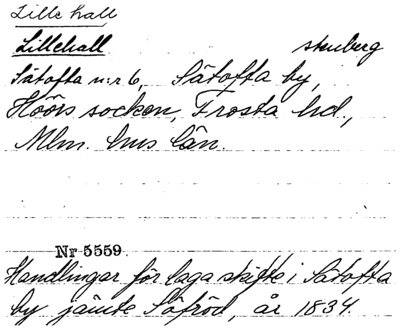 Lille hall
Lillehall stenberg
Sätofta n:r 6, Sätofta by,
Höörs socken, Frosta hd.,
Mlm. hus län.
Nr 5559.
Handlingar för laga skifte i Sätofta
by jämte Söfröd, år 1834.